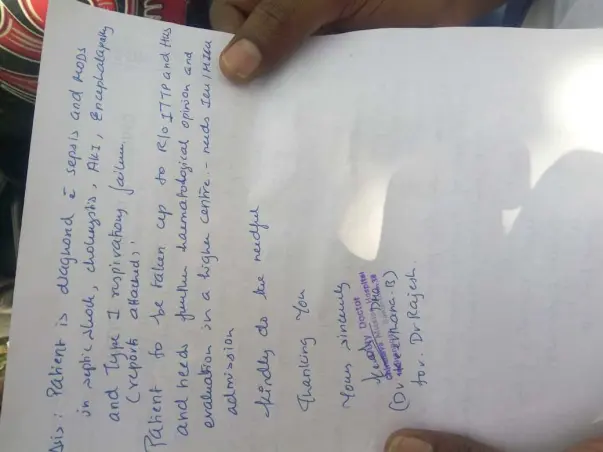 Δis : Patient is diagnosed c̄ sepsis and MODS
in septic shock, cholecystis, AKI, encephalopathy
and Type I respiratory failure
(reports attached).
Patient to be taken up to R/o ITTP and HUS
and needs further haematological opinion and
evaluation in a higher centre - needs ICU / MICU
admission
kindly do the needful
Thanking You
Yours sincerely
DUTY DOCTOR
(Dr
for. Dr Rajesh.